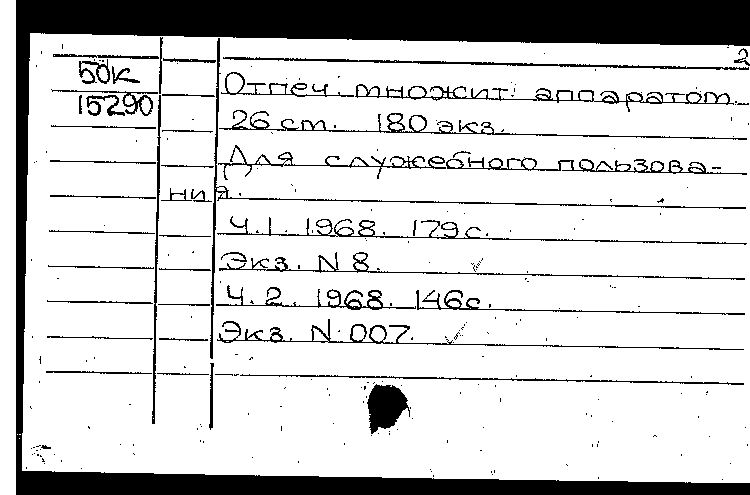 2
50к
15290
Отпеч. множит. аппаратом
26 cm. 180 экз.
Для служебного пользова-
ния.
Ч.1. 1968. 179 с.
Экз. N 8. ✓
Ч.2. 1968. 146 с.
Экз. N 007. ✓